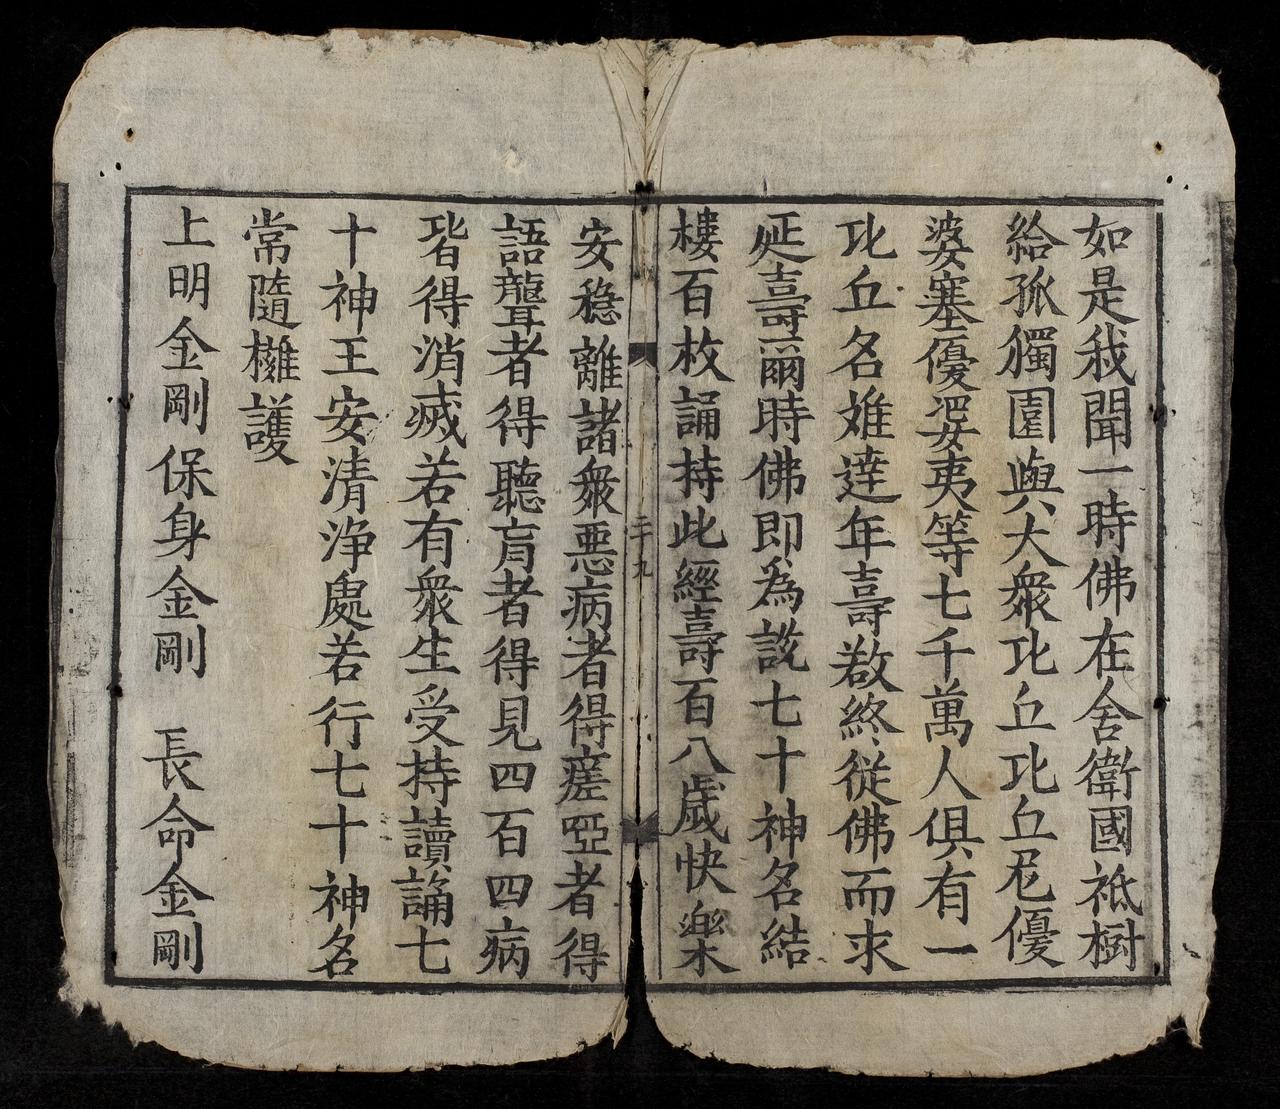 如是我聞一時佛在舍衛國祇樹
給孤獨園與大衆比丘比丘尼優
婆塞優婆夷等七千萬人俱有一
比丘名難達年壽欲終從佛而求
延壽爾時佛即為說七十神名結
樓百枚誦持此經壽百八歲快樂
二十九
安穩離諸衆惡病者得瘥啞者得
語聾者得聽盲者得見四百四病
皆得消滅若有衆生受持讀誦七
十神王安清淨處若行七十神名
常隨擁護
上明金剛保身金剛 長命金剛